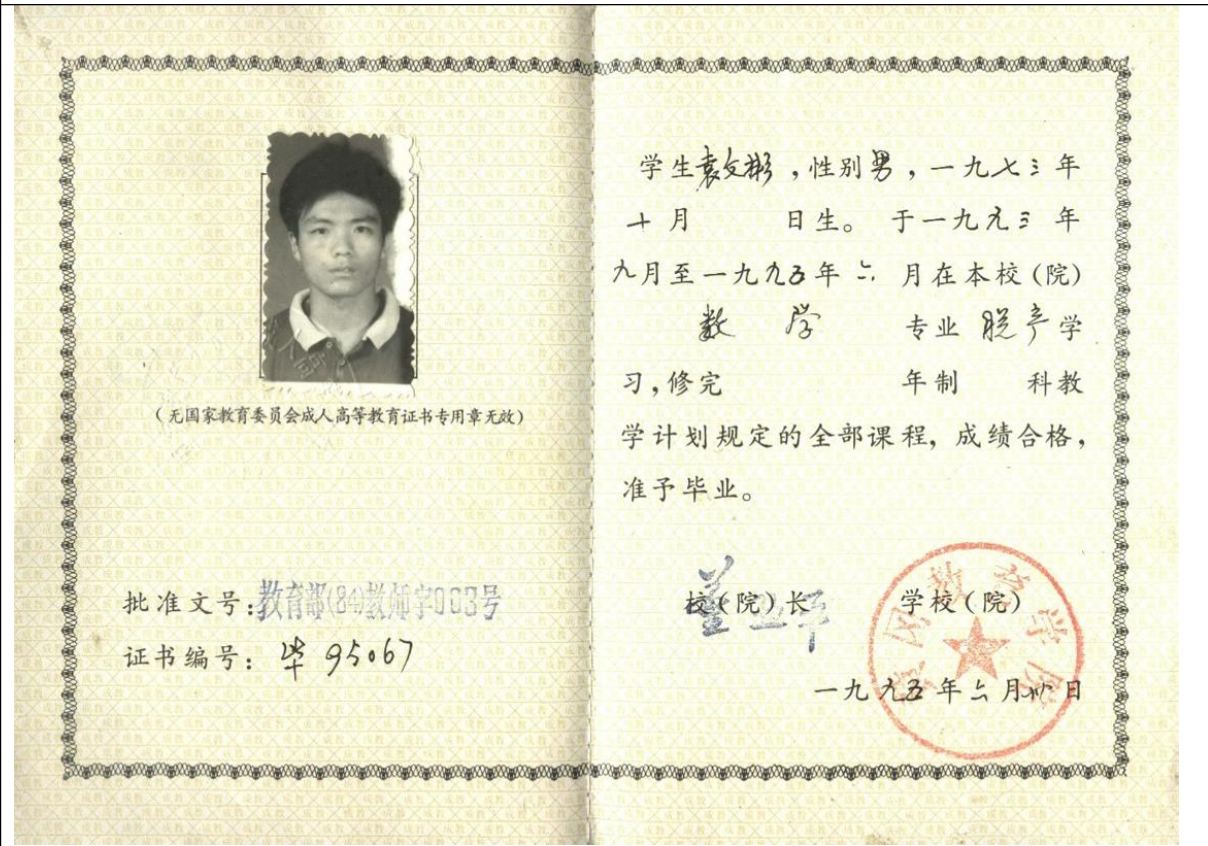 (无国家教育委员会成人高等教育证书专用章无效)
批准文号:教育部(84)教师字003号
证书编号:毕95067
学生袁文彬,性别男,一九七三年
十月 日生。于一九九三年
九月至一九九五年六月在本校(院)
数学 专业脱产学
习,修完 年制 科教
学计划规定的全部课程,成绩合格,
准予毕业。
校(院)长 学校(院)
教育学院
一九九五年六月 日